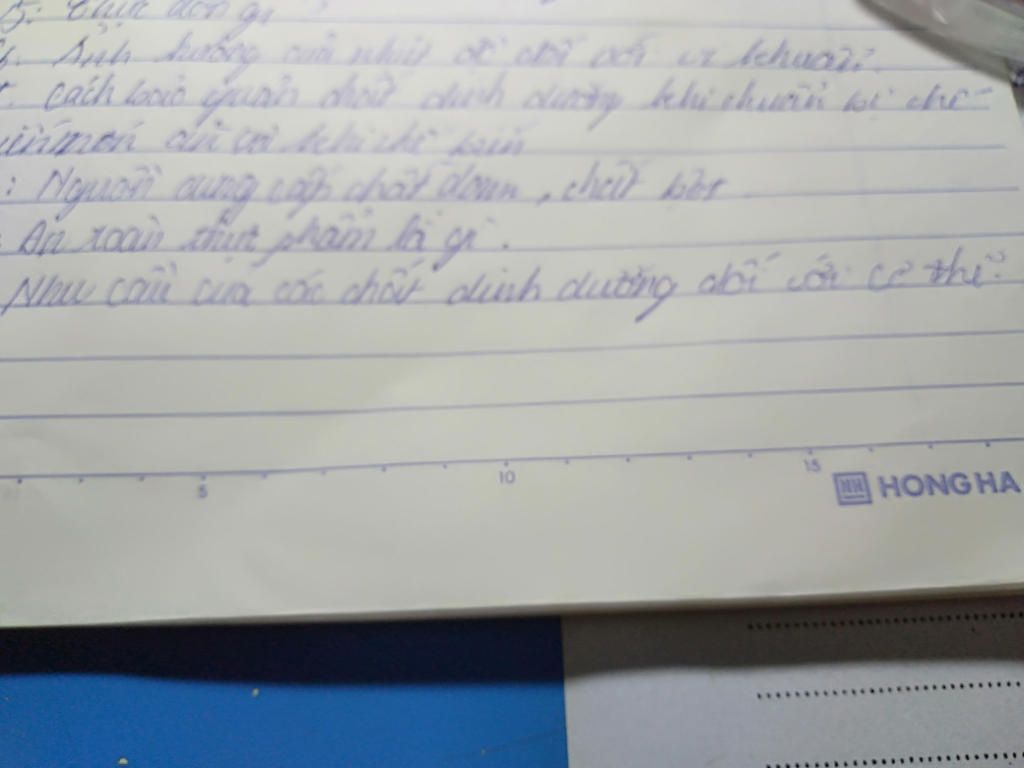 5: Thực đơn gì
6. Ảnh hưởng của nhiệt độ đối với vi khuẩn?
7. Cách bảo quản chất dinh dưỡng khi chuẩn bị chế
biến món ăn và khi chế biến
: Nguồn cung cấp chất đạm, chất béo
An toàn thực phẩm là gì.
Nhu cầu của các chất dinh dưỡng đối với cơ thể.
5 10 15
HH HONG HA